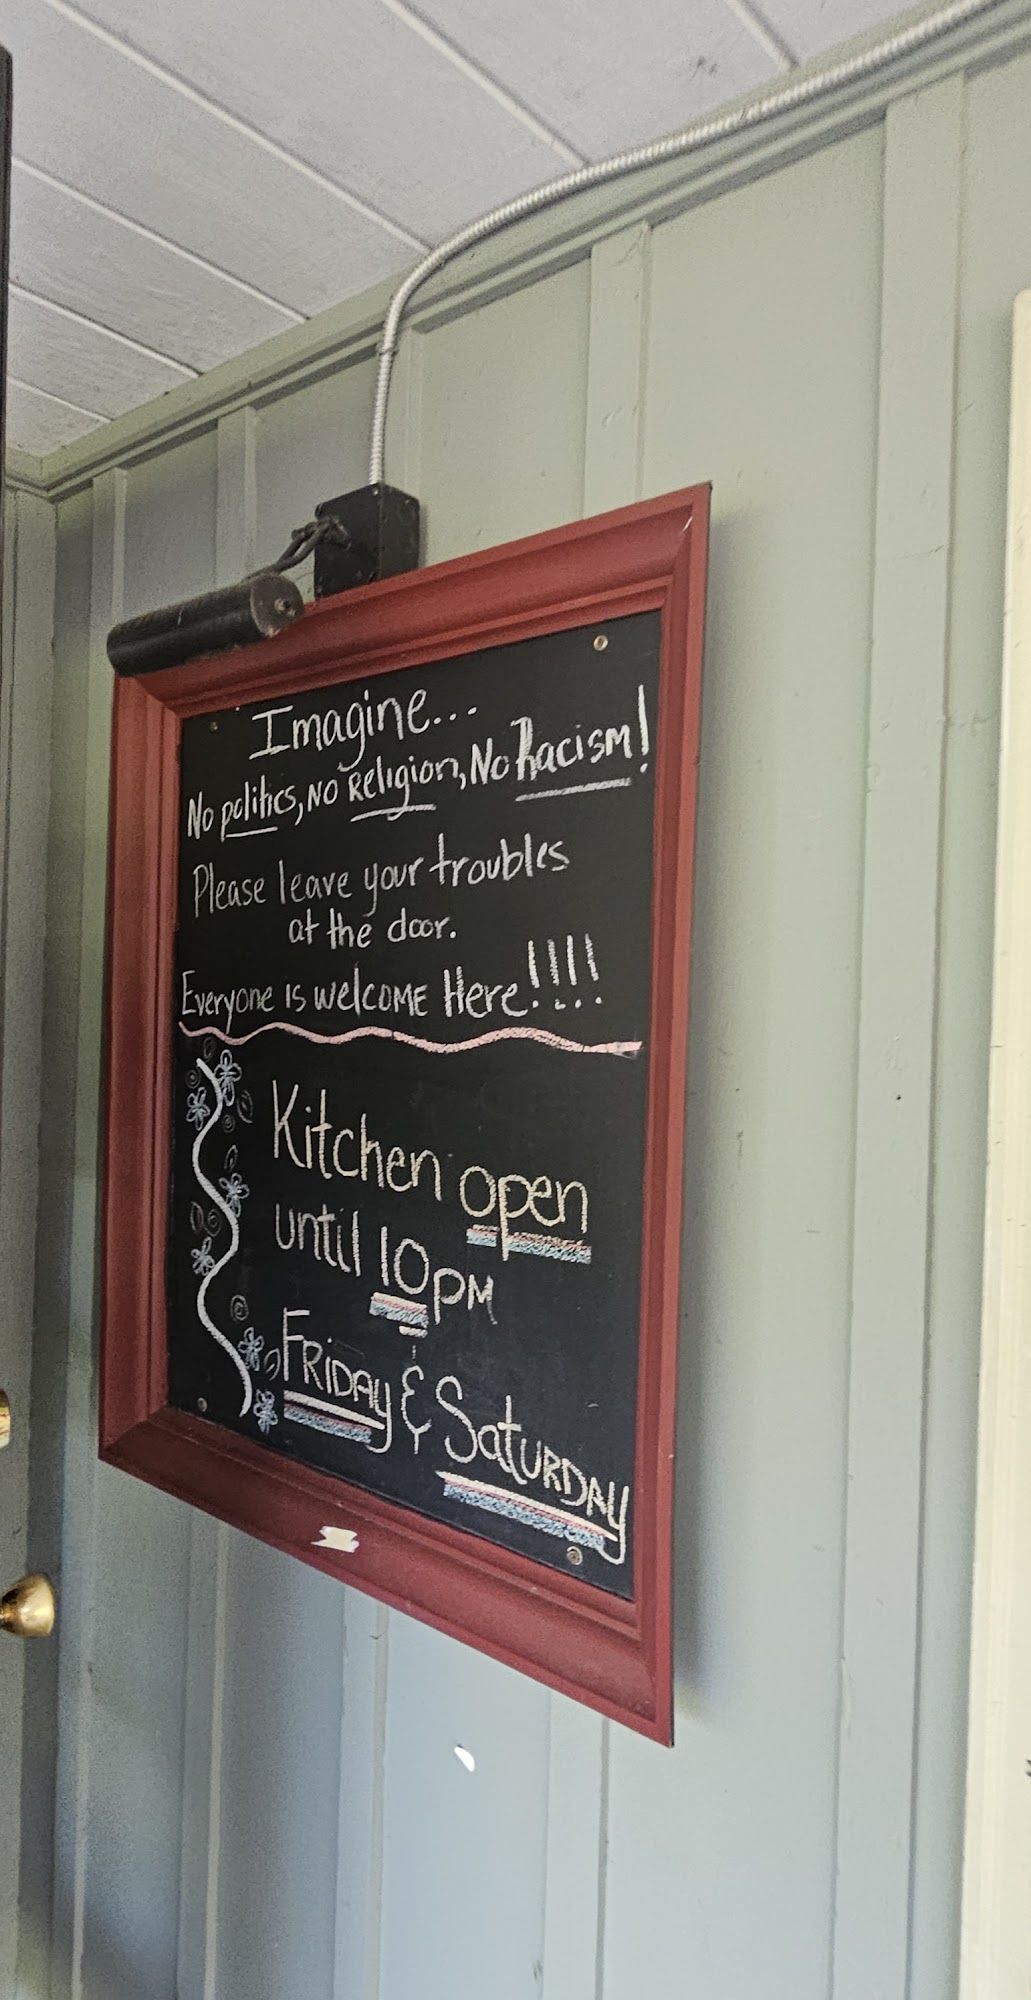 Imagine...
No politics, No Religion, No Racism!
Please leave your troubles
at the door.
Everyone is welcome Here!!!!
Kitchen open
until 10pm
Friday & Saturday